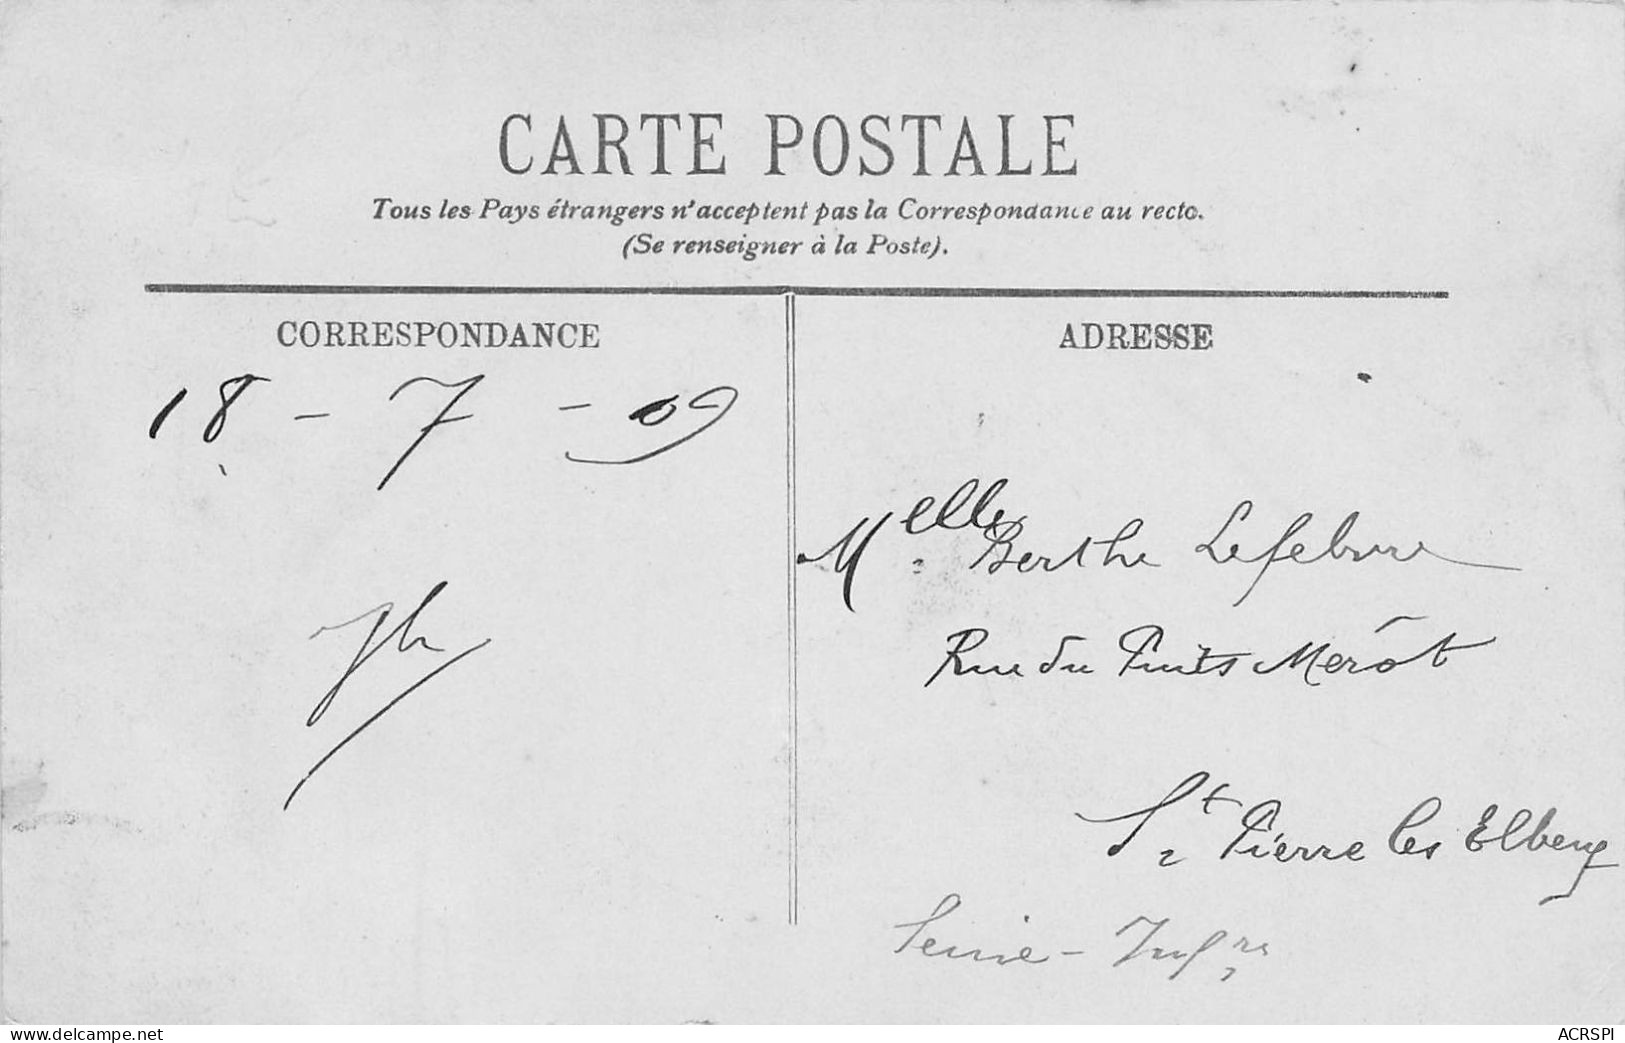 CARTE POSTALE
Tous les Pays étrangers n'acceptent pas la Correspondance au recto.
(Se renseigner à la Poste).
CORRESPONDANCE
18 - 7 - 09
ADRESSE
Melle Berthe Lefebvre
Rue du Puits Merôt
St Pierre les Elbeuf
Seine-Infre
www.delcampe.net
ACRSPI